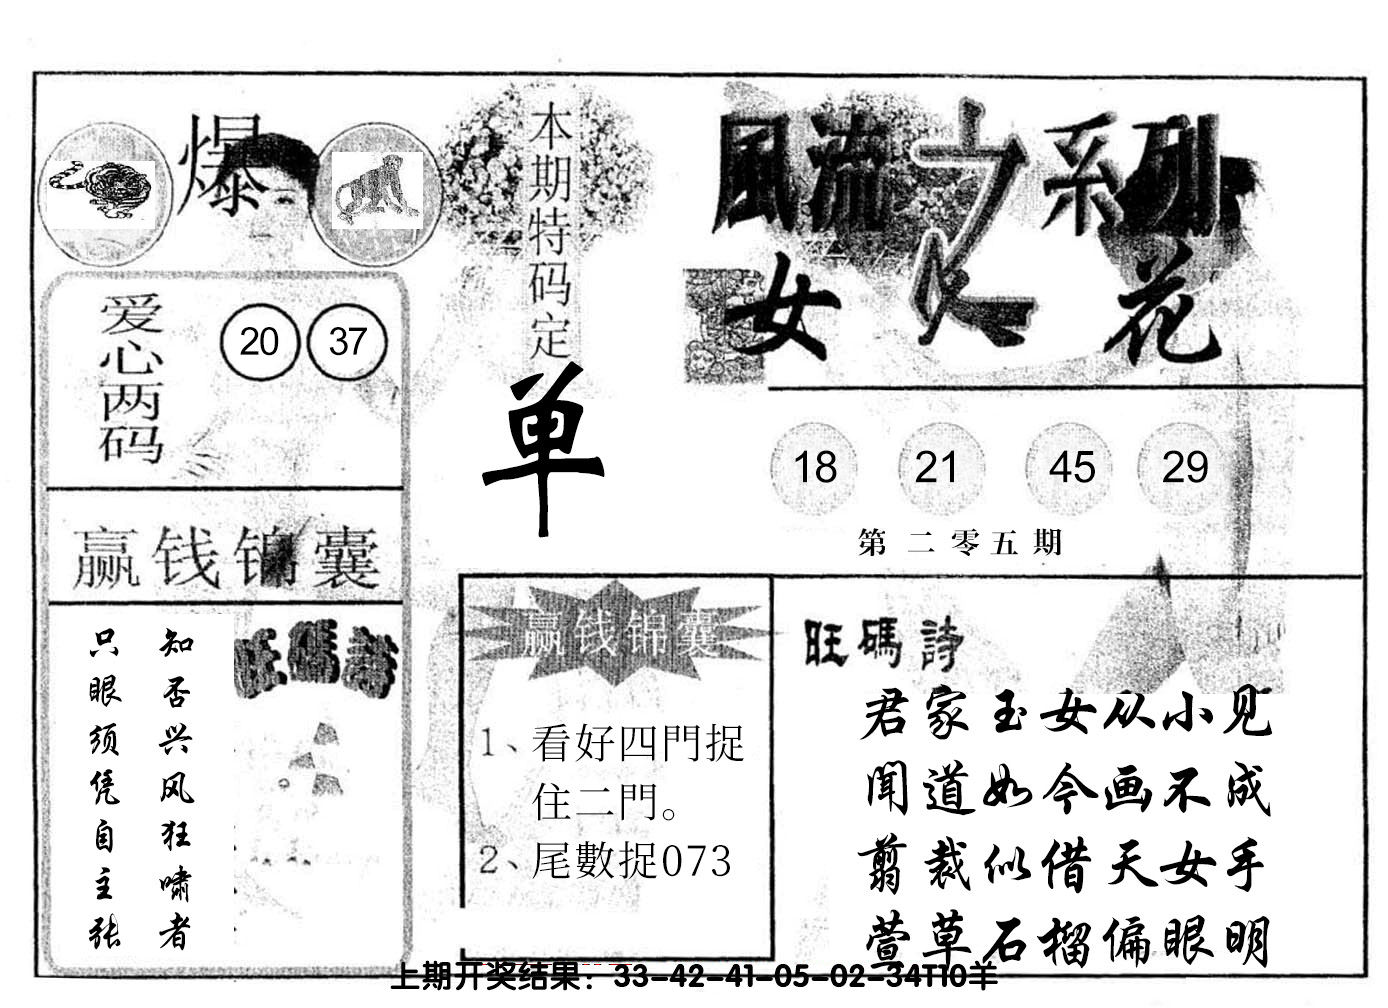 爆
本期特码定
单
風流之系列
女人花
爱心两码
20 37
18 21 45 29
第二零五期
赢钱锦囊
知否兴风狂啸者
只眼须凭自主张
旺碼詩
赢钱锦囊
1、看好四門捉
住二門。
2、尾數捉073
旺碼詩
君家玉女从小见
闻道如今画不成
剪裁似借天女手
萱草石榴偏眼明
上期开奖结果：33-42-41-05-02-34T10羊